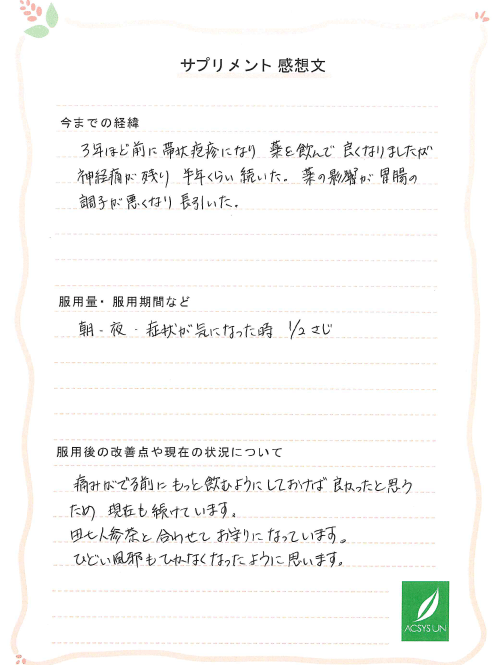 サプリメント 感想文
今までの経緯
3年ほど前に帯状疱疹になり 薬を飲んで 良くなりましたが
神経痛が残り 半年くらい続いた。薬の影響が胃腸の
調子が悪くなり長引いた。
服用量・服用期間など
朝・夜・症状が気になった時 1/2さじ
服用後の改善点や現在の状況について
痛みがでる前に もっと飲むようにしておけば良かったと思う
ため 現在も続けています。
田七人参茶と合わせてお守りになっています。
ひどい風邪もひかなくなったように思います。
ACSYS UN